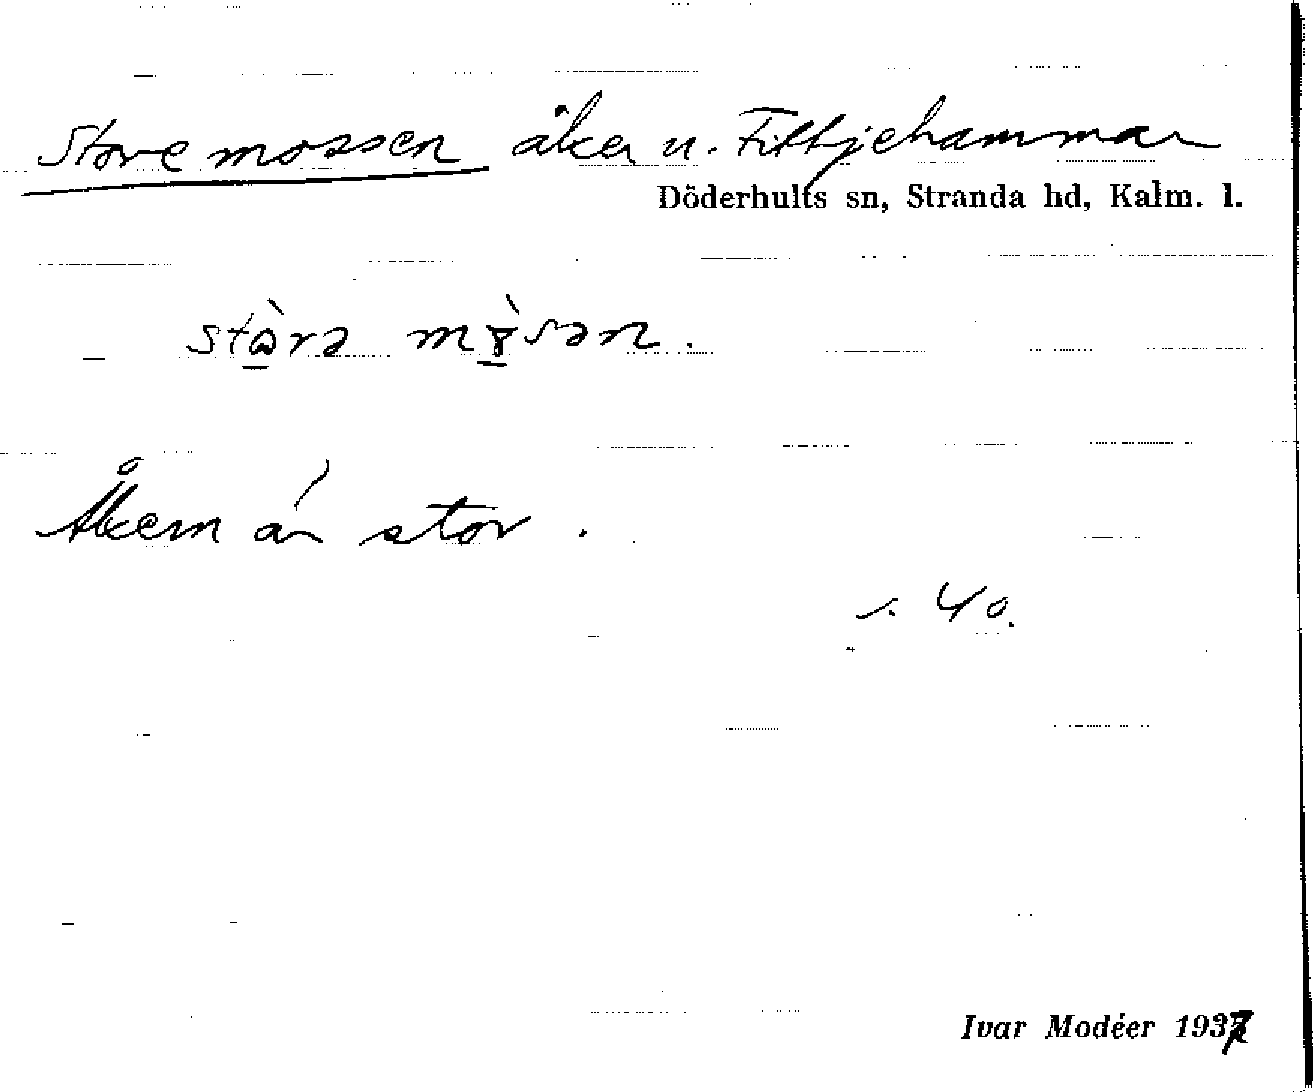 Store mossen åker u. Fittjehammar
Döderhults sn, Stranda hd, Kalm. l.
Åkern är stor.
s. 40.
Ivar Modéer 1937